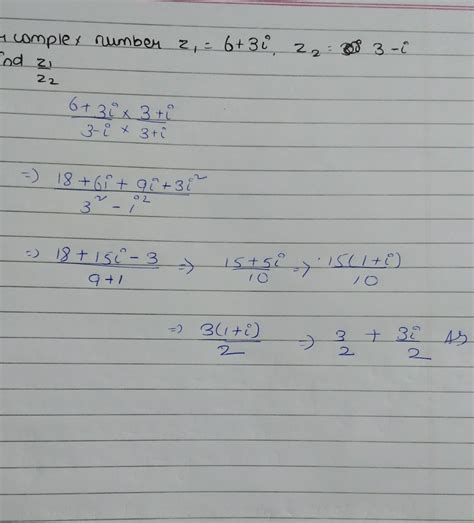 complex number z₁ = 6+3i, z₂ = 3-i
find z₁/z₂
(6+3i × 3+i)/(3-i × 3+i)
=> (18+6i+9i+3i²)/(3²-i²)
=> (18+15i-3)/(9+1) => (15+5i)/10 => 15(1+i)/10
=> 3(1+i)/2 => 3/2 + 3i/2 As